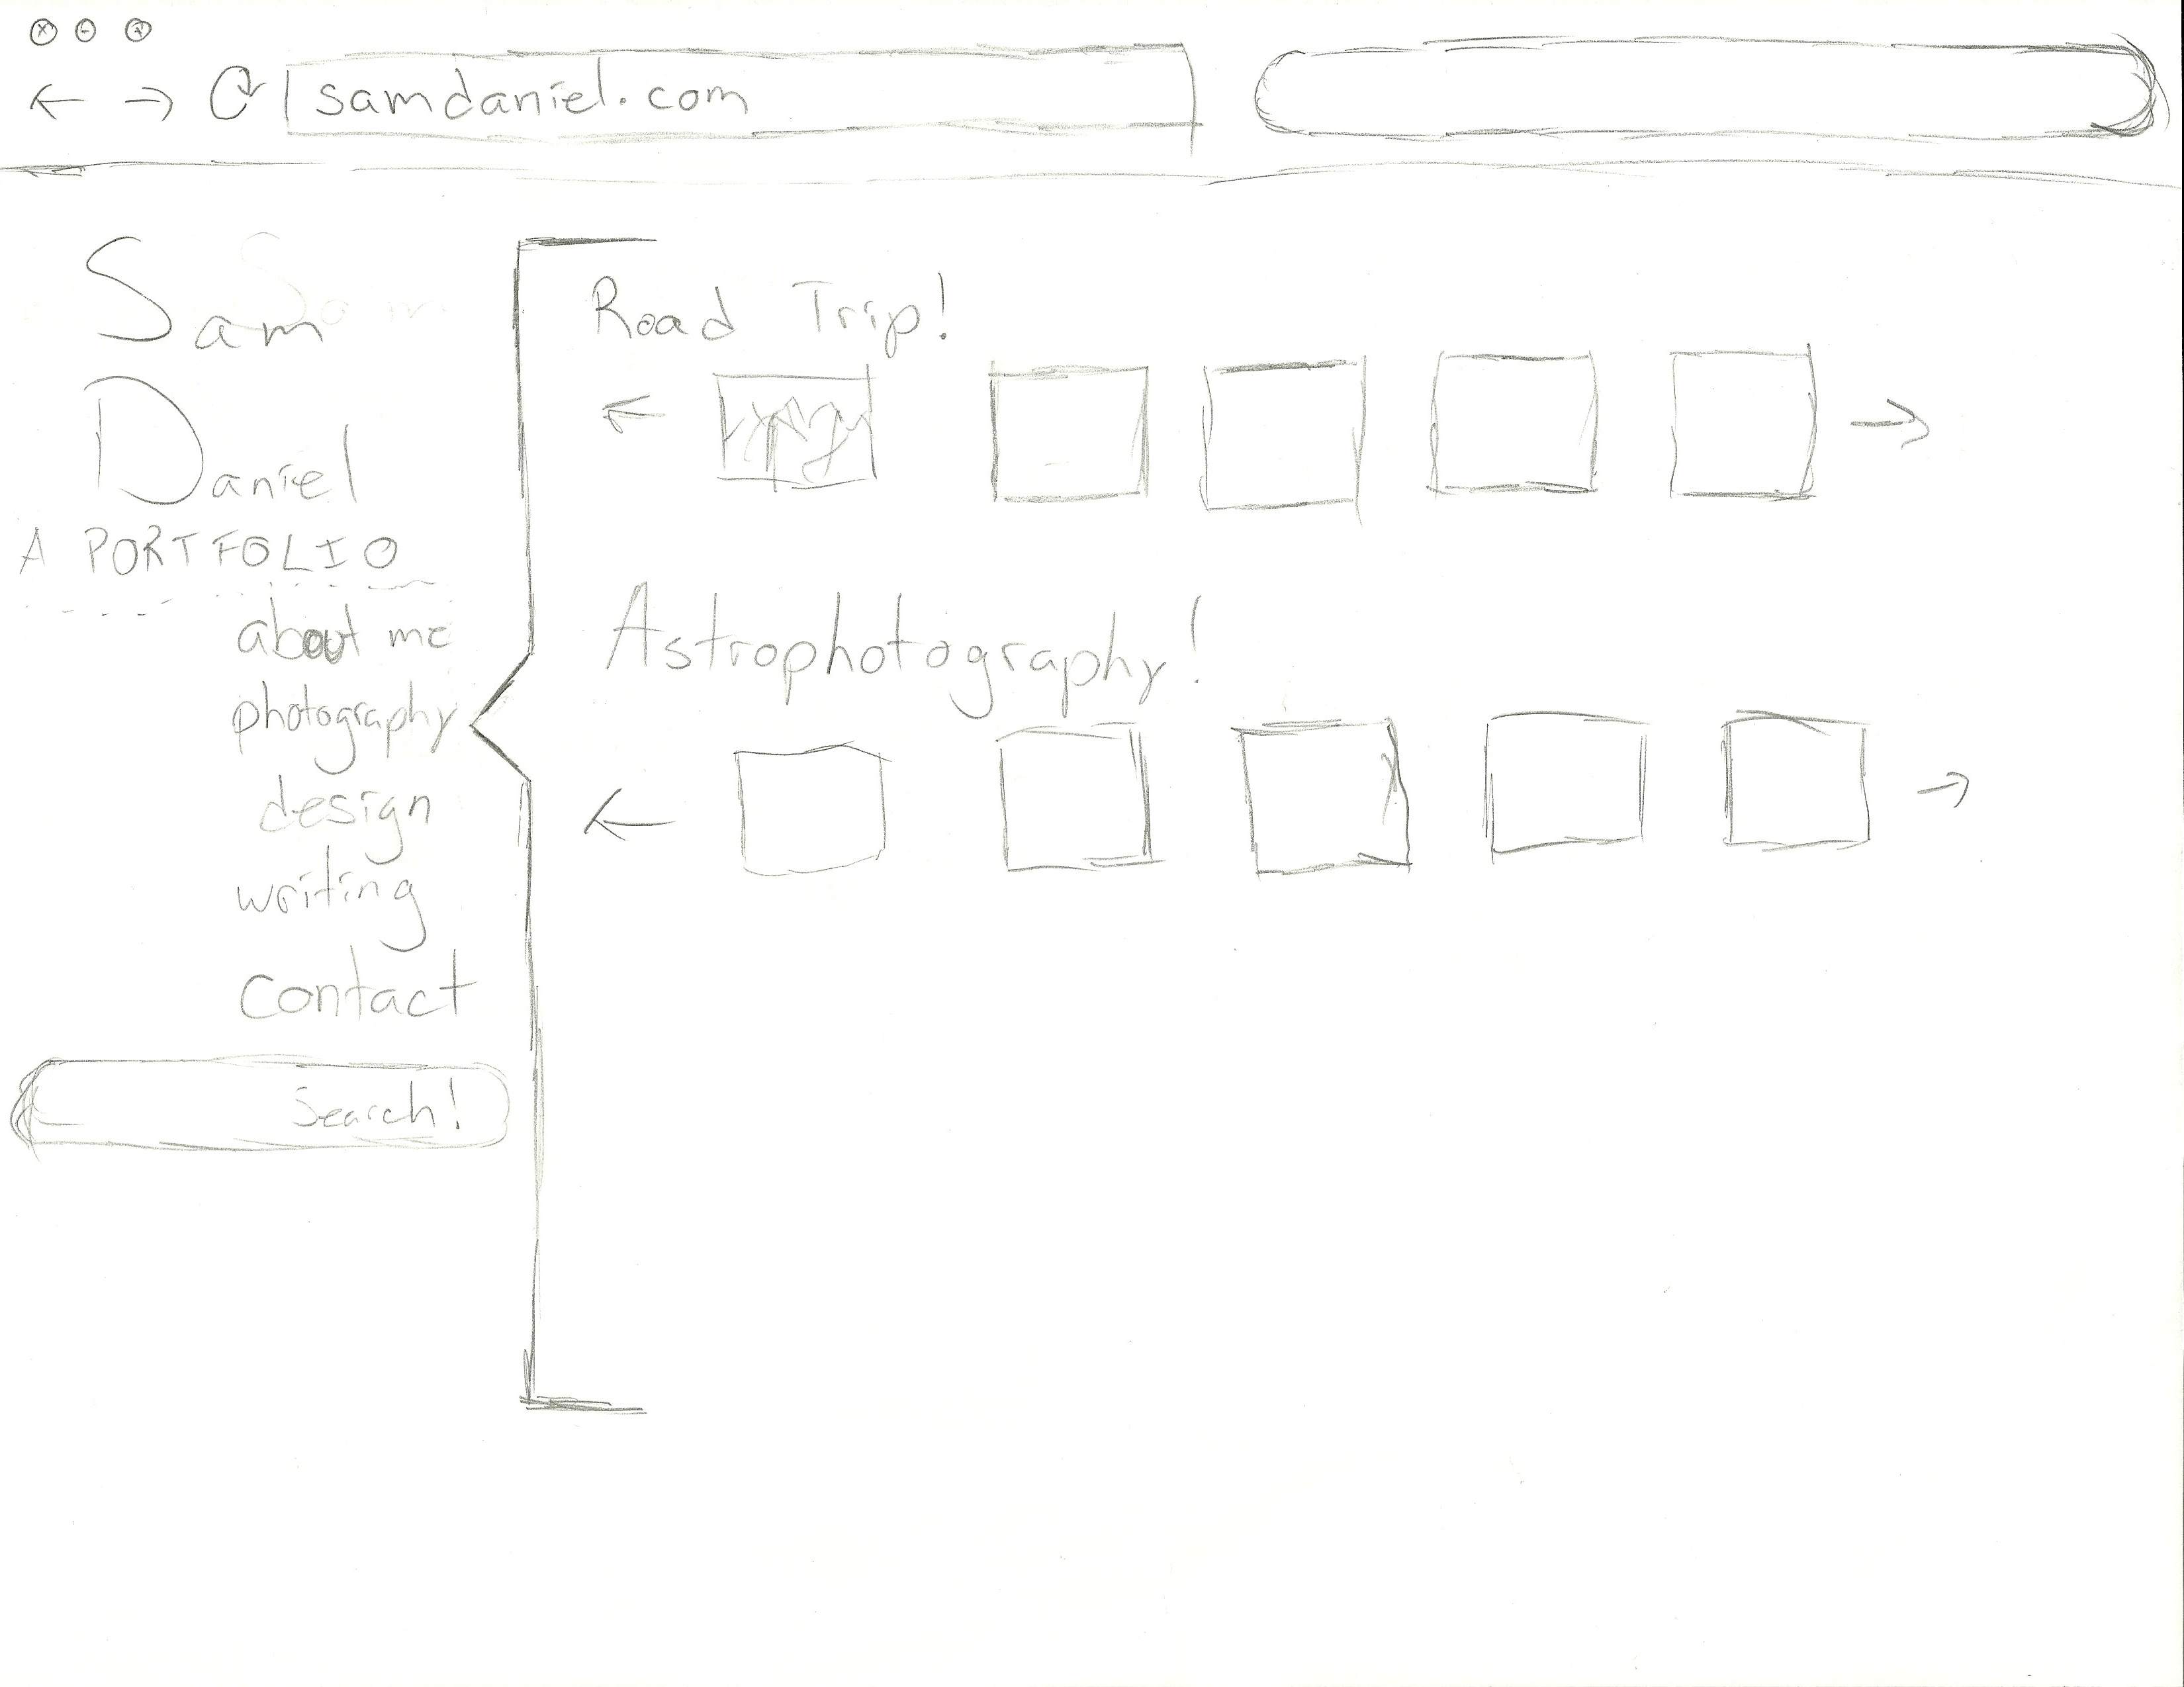 samdaniel.com
Sam
Daniel
A PORTFOLIO
about me
photography
design
writing
contact
Search!
Road Trip!
Astrophotography!